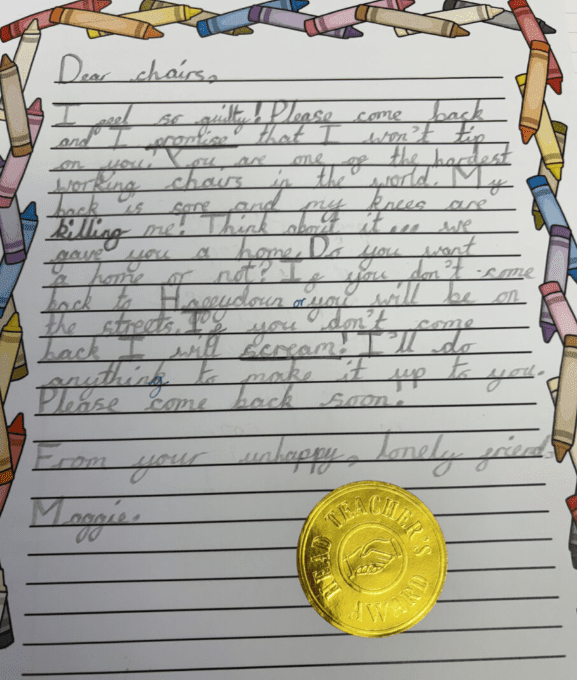 Dear chairs,
I feel so guilty! Please come back
and I promise that I won't tip
on you. You are one of the hardest
working chairs in the world. My
back is sore and my knees are
killing me! Think about it... we
gave you a home. Do you want
a home or not? If you don't come
back to Haggydown or you will be on
the streets. If you don't come
back I will scream! I'll do
anything to make it up to you.
Please come back soon.
From your unhappy, lonely friend,
Maggie.
HEAD TEACHER'S
AWARD